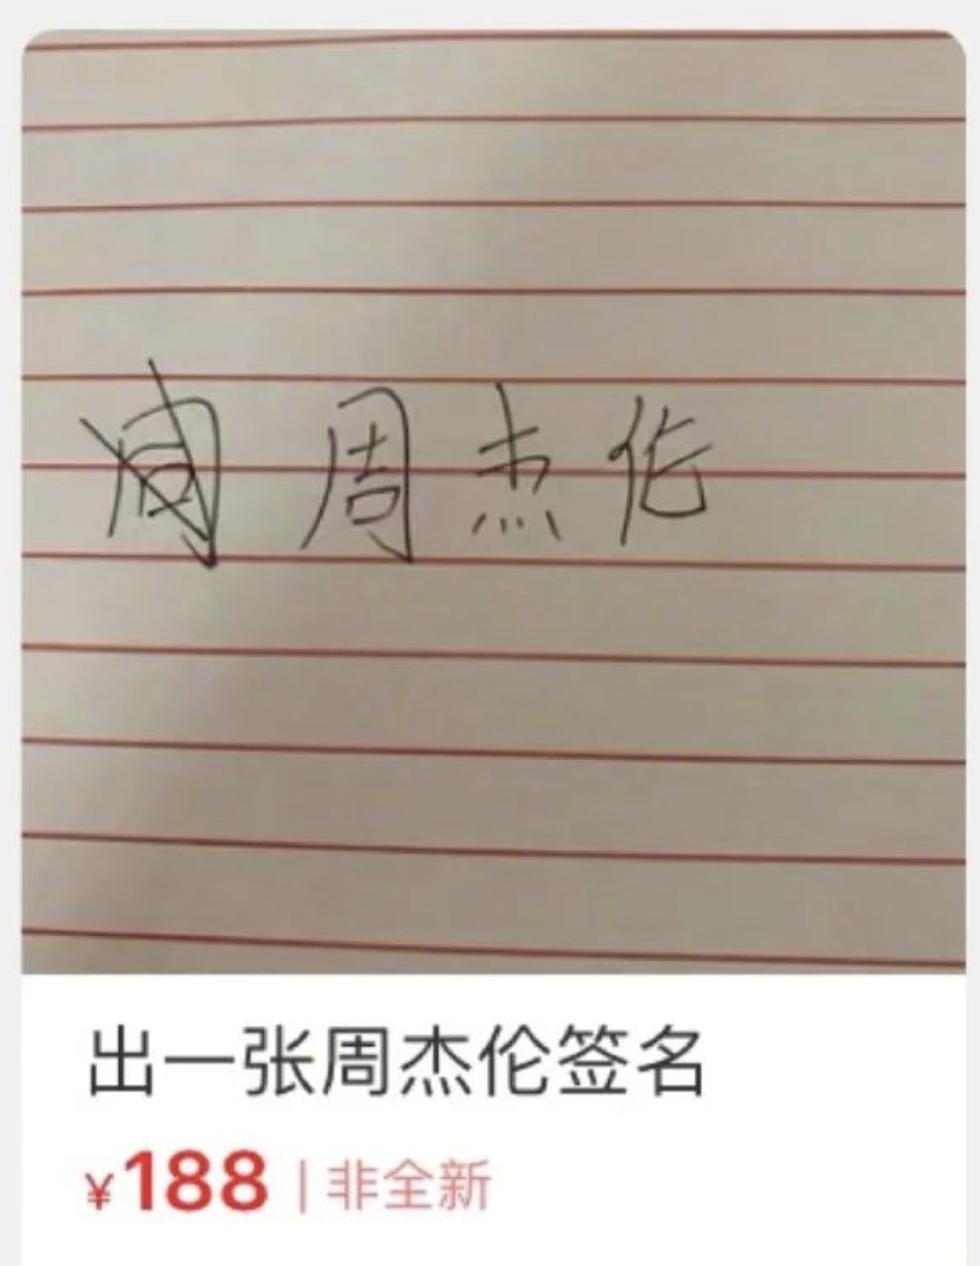 周杰伦
出一张周杰伦签名
¥188 | 非全新